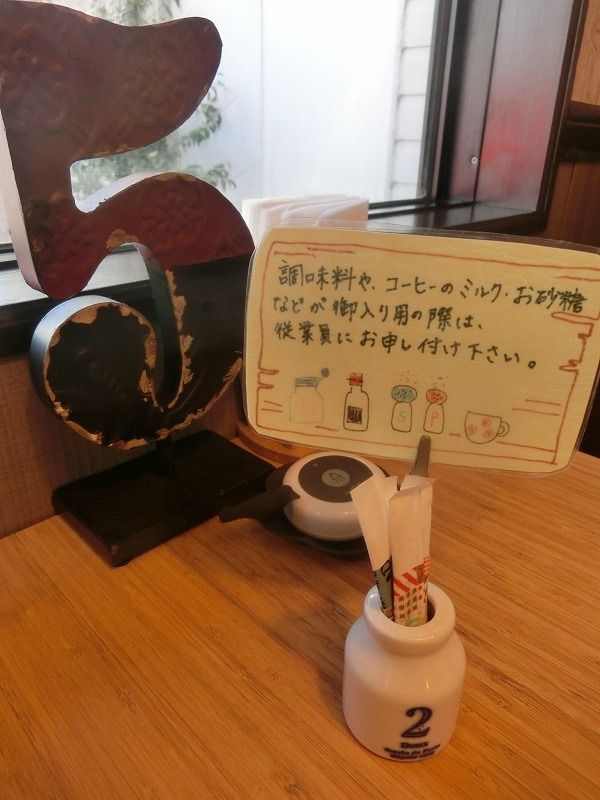 5
調味料や、コーヒーのミルク・お砂糖
などが御入り用の際は、
従業員にお申し付け下さい。
S P
2
Deux